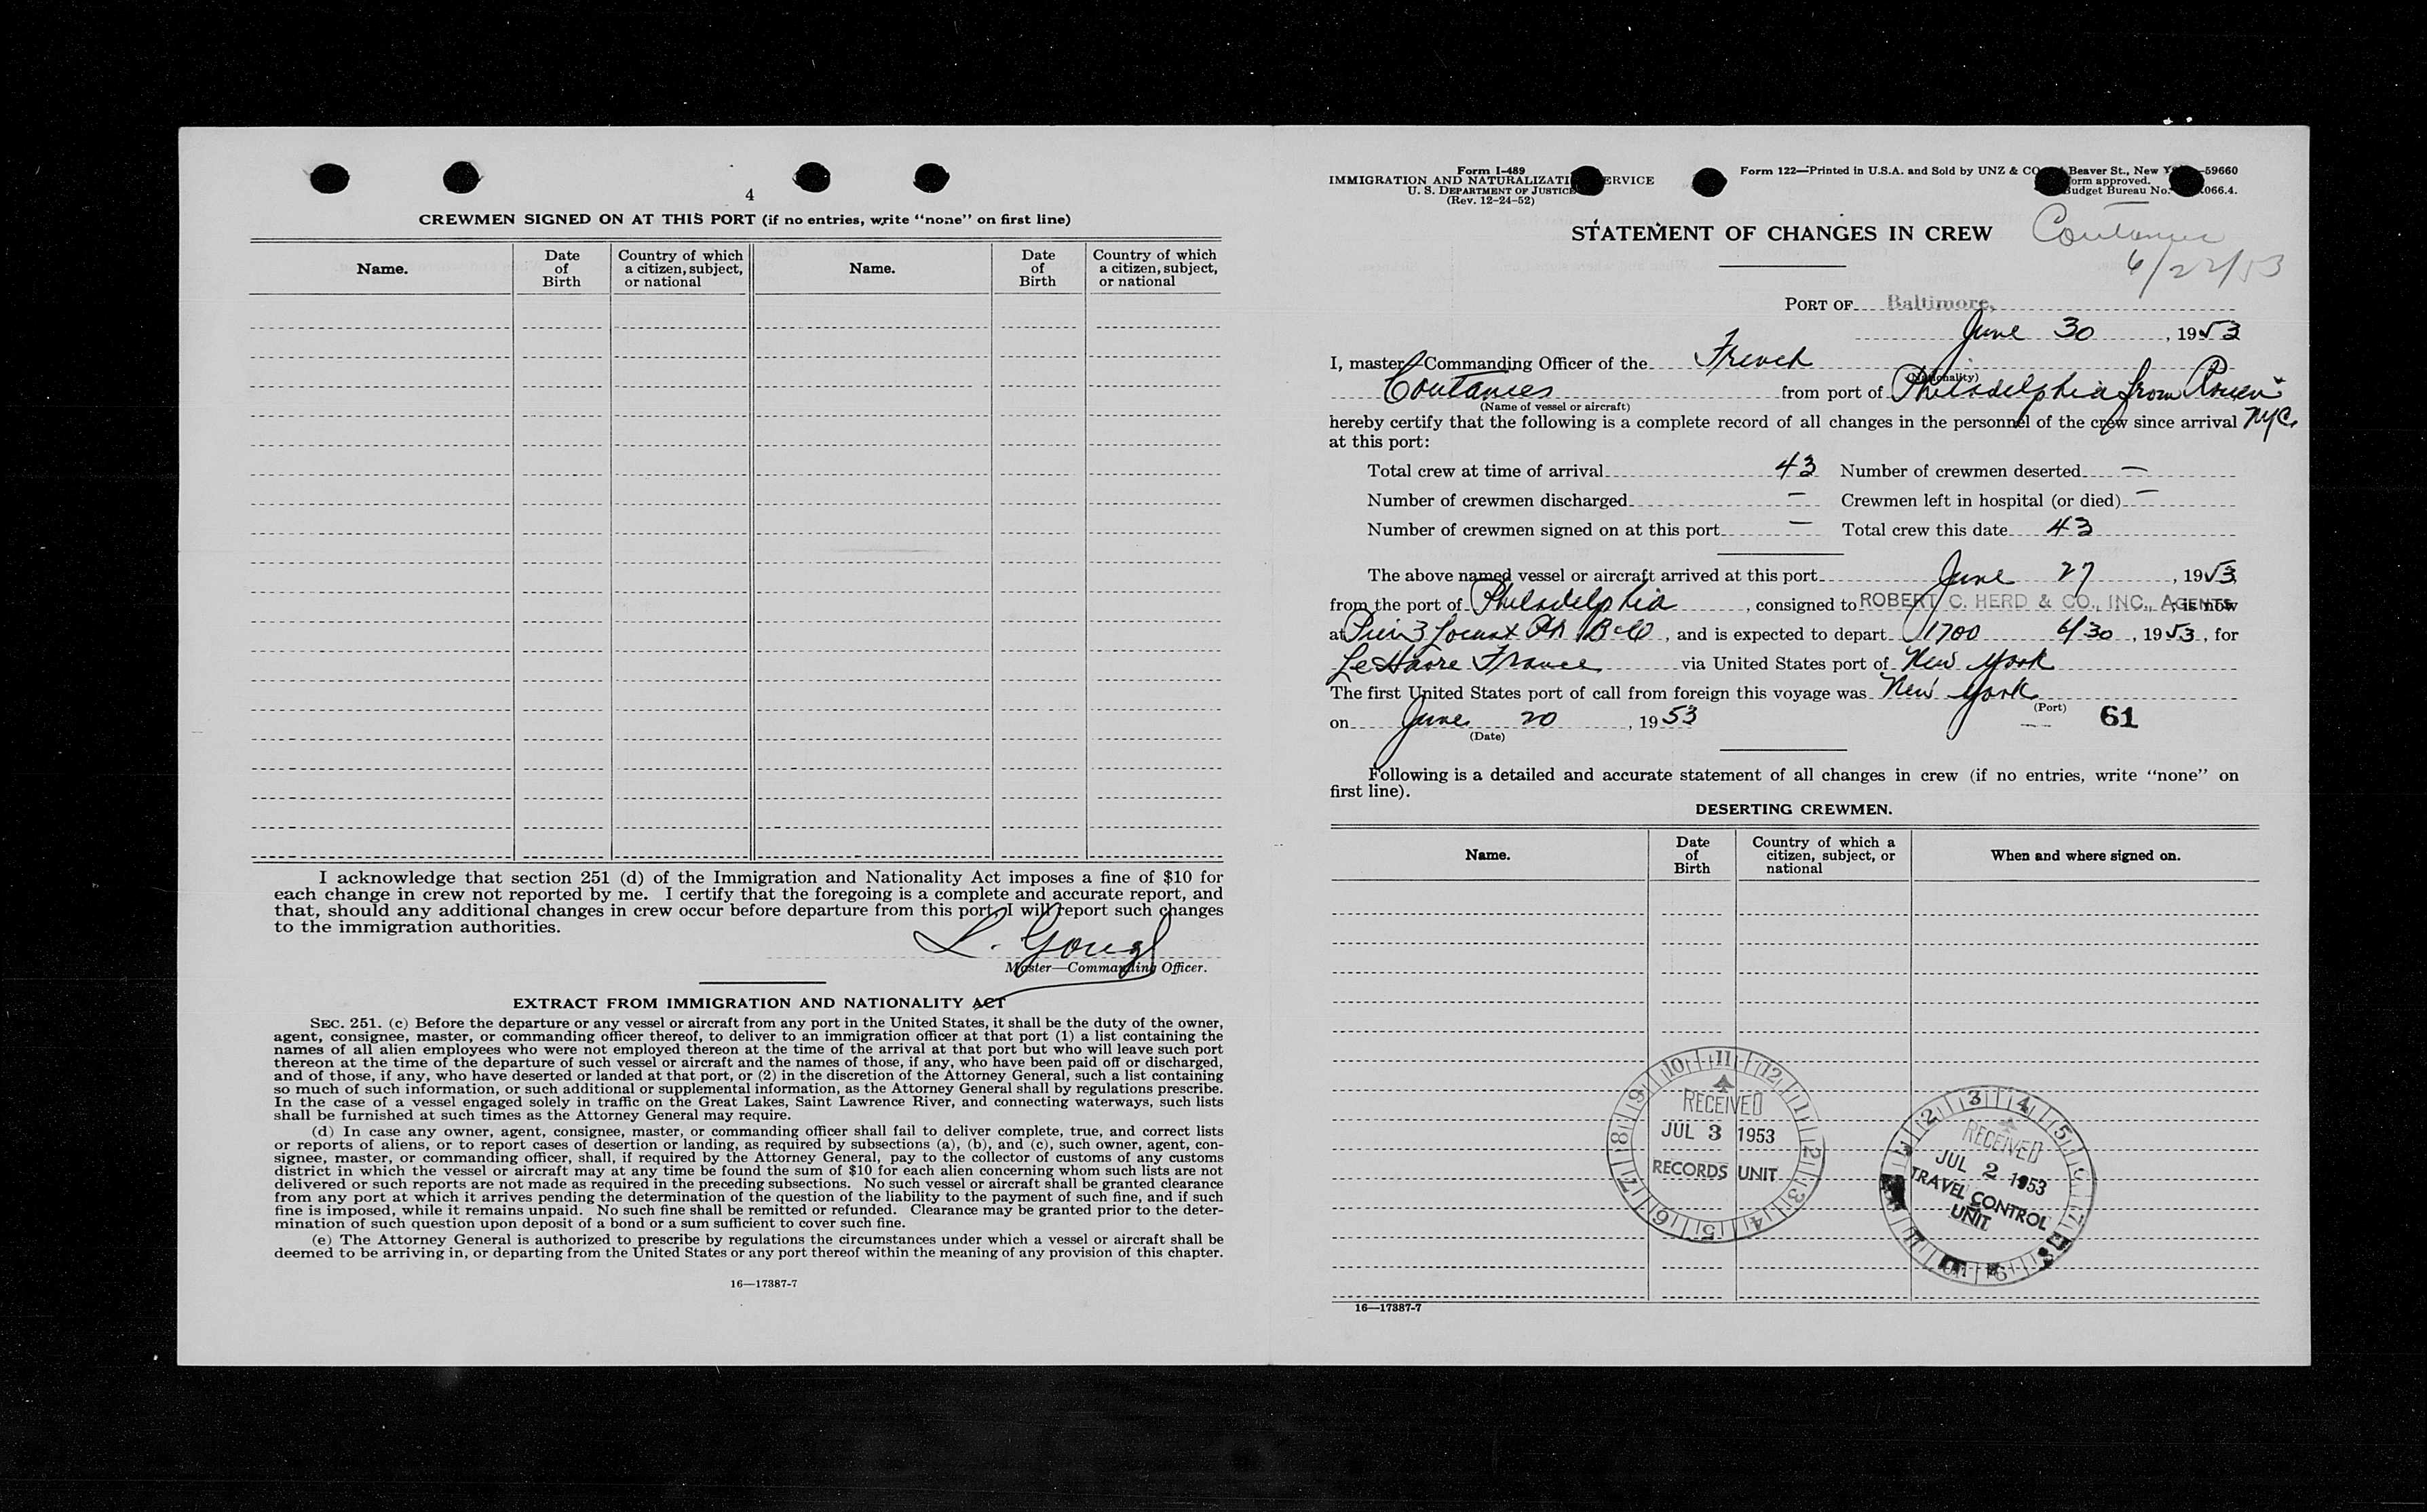 4
CREWMEN SIGNED ON AT THIS PORT (if no entries, write "none" on first line)
Name. Date of Birth Country of which a citizen, subject, or national Name. Date of Birth Country of which a citizen, subject, or national
I acknowledge that section 251 (d) of the Immigration and Nationality Act imposes a fine of $10 for
each change in crew not reported by me. I certify that the foregoing is a complete and accurate report, and
that, should any additional changes in crew occur before departure from this port, I will report such changes
to the immigration authorities.
L.
Master—Commanding Officer.
EXTRACT FROM IMMIGRATION AND NATIONALITY ACT
SEC. 251. (c) Before the departure or any vessel or aircraft from any port in the United States, it shall be the duty of the owner,
agent, consignee, master, or commanding officer thereof, to deliver to an immigration officer at that port (1) a list containing the
names of all alien employees who were not employed thereon at the time of the arrival at that port but who will leave such port
thereon at the time of the departure of such vessel or aircraft and the names of those, if any, who have been paid off or discharged,
and of those, if any, who have deserted or landed at that port, or (2) in the discretion of the Attorney General, such a list containing
so much of such information, or such additional or supplemental information, as the Attorney General shall by regulations prescribe.
In the case of a vessel engaged solely in traffic on the Great Lakes, Saint Lawrence River, and connecting waterways, such lists
shall be furnished at such times as the Attorney General may require.
(d) In case any owner, agent, consignee, master, or commanding officer shall fail to deliver complete, true, and correct lists
or reports of aliens, or to report cases of desertion or landing, as required by subsections (a), (b), and (c), such owner, agent, con-
signee, master, or commanding officer, shall, if required by the Attorney General, pay to the collector of customs of any customs
district in which the vessel or aircraft may at any time be found the sum of $10 for each alien concerning whom such lists are not
delivered or such reports are not made as required in the preceding subsections. No such vessel or aircraft shall be granted clearance
from any port at which it arrives pending the determination of the question of the liability to the payment of such fine, and if such
fine is imposed, while it remains unpaid. No such fine shall be remitted or refunded. Clearance may be granted prior to the deter-
mination of such question upon deposit of a bond or a sum sufficient to cover such fine.
(e) The Attorney General is authorized to prescribe by regulations the circumstances under which a vessel or aircraft shall be
deemed to be arriving in, or departing from the United States or any port thereof within the meaning of any provision of this chapter.
16—17387-7
Form I-489
IMMIGRATION AND NATURALIZATI ERVICE
U. S. DEPARTMENT OF JUSTICE
(Rev. 12-24-52)
Form 122—Printed in U.S.A. and Sold by UNZ & CO Beaver St., New Y 59660
orm approved.
Budget Bureau No. 066.4.
STATEMENT OF CHANGES IN CREW
Coutances
6/22/53
PORT OF Baltimore,
June 30, 1953
I, master, Commanding Officer of the French
(Nationality)
Coutances from port of Philadelphia from Rouen
(Name of vessel or aircraft)
hereby certify that the following is a complete record of all changes in the personnel of the crew since arrival NYC.
at this port:
Total crew at time of arrival 43 Number of crewmen deserted —
Number of crewmen discharged — Crewmen left in hospital (or died) —
Number of crewmen signed on at this port — Total crew this date 43
The above named vessel or aircraft arrived at this port June 27, 1953,
from the port of Philadelphia, consigned to ROBERT C. HERD & CO., INC., AGENTS, is now
at Pier 3 Locust Pt B&O, and is expected to depart 1700 6/30, 1953, for
Le Havre France via United States port of New York
The first United States port of call from foreign this voyage was New York
(Port)
on June 20, 1953
(Date)
61
Following is a detailed and accurate statement of all changes in crew (if no entries, write "none" on
first line).
DESERTING CREWMEN.
Name. Date of Birth Country of which a citizen, subject, or national When and where signed on.
RECEIVED
JUL 3 1953
RECORDS UNIT
RECEIVED
JUL 2 1953
TRAVEL CONTROL
UNIT
16—17387-7